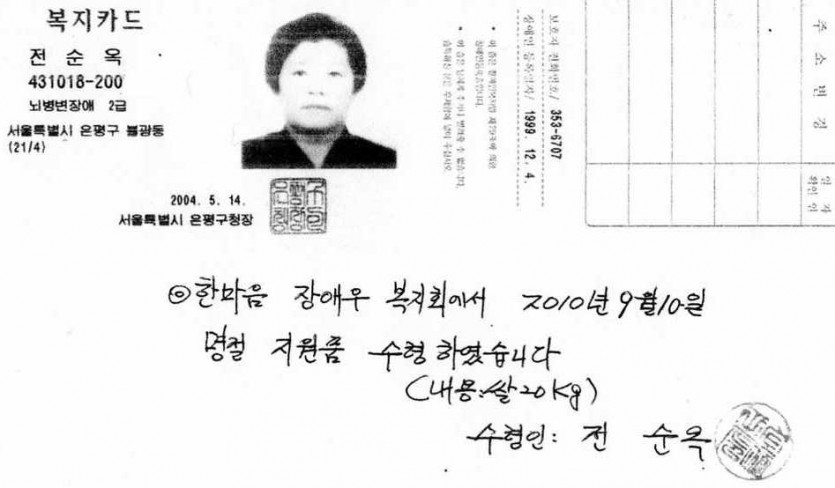 복지카드
전 순 옥
431018-200
뇌병변장애 2급
서울특별시 은평구 불광동
(21/4)
2004. 5. 14.
서울특별시 은평구청장
보호자 전화번호/ 353-6707
장애인 등록일자/ 1999. 12. 4.
주 소 변 경
일 자
확인 인
◎한마음 장애우 복지회에서 2010년 9월10일
명절 지원품 수령 하였습니다
(내용:쌀20Kg)
수령인: 전 순옥